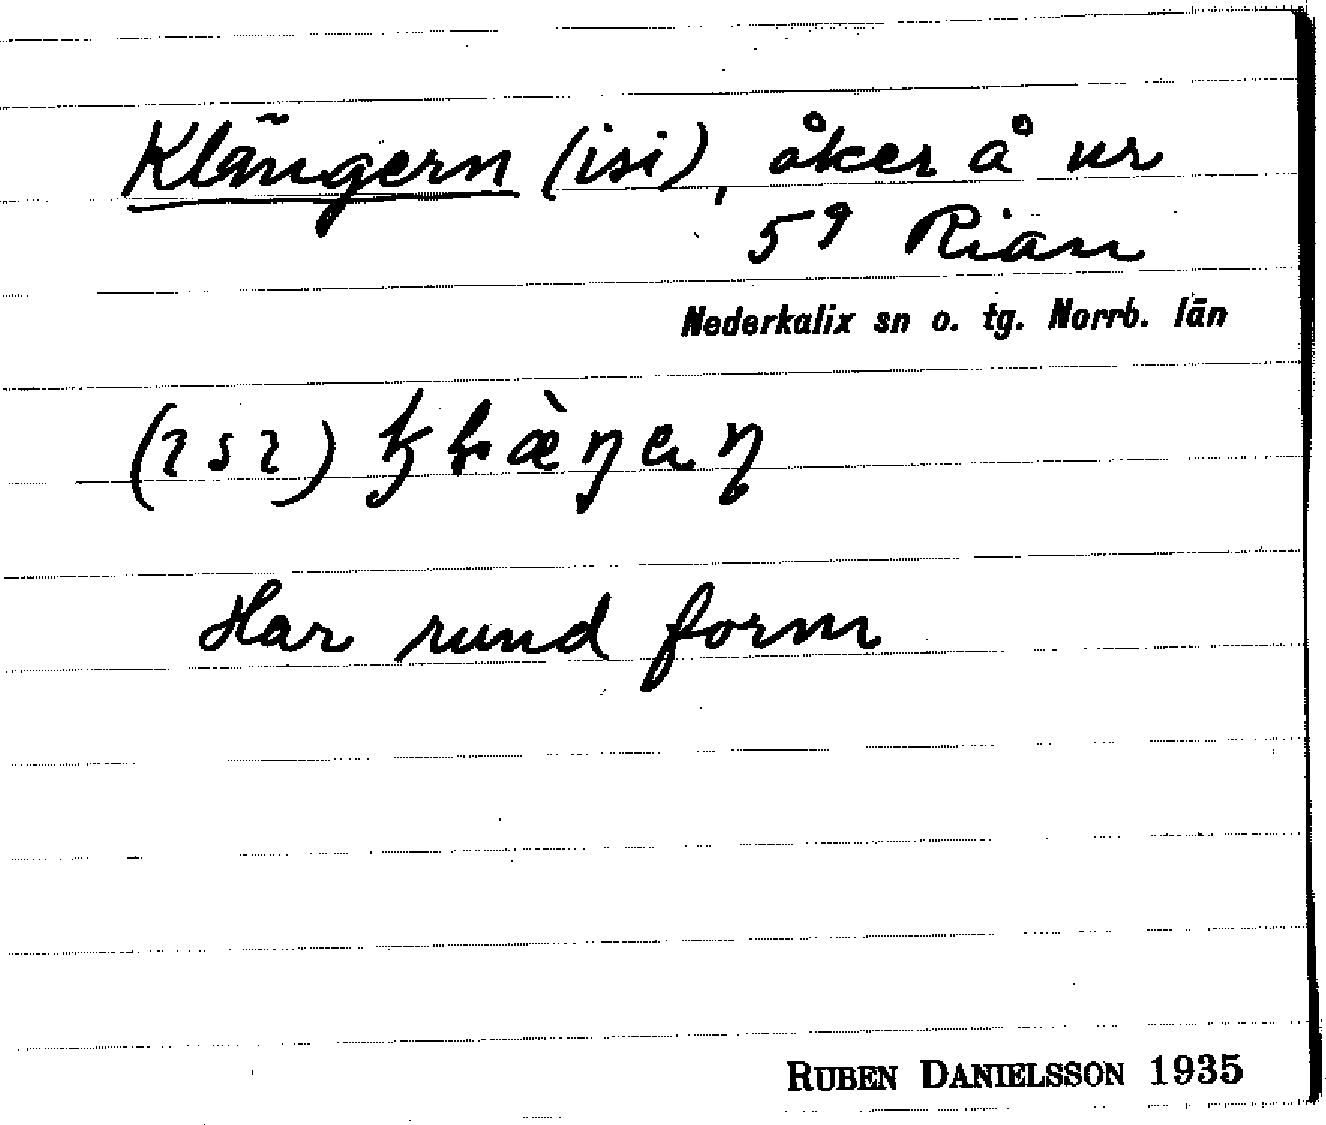 Klängern (isi), åker å nr
59 Riän
Nederkalix sn o. tg. Norrb. län
Har rund form
RUBEN DANIELSSON 1935